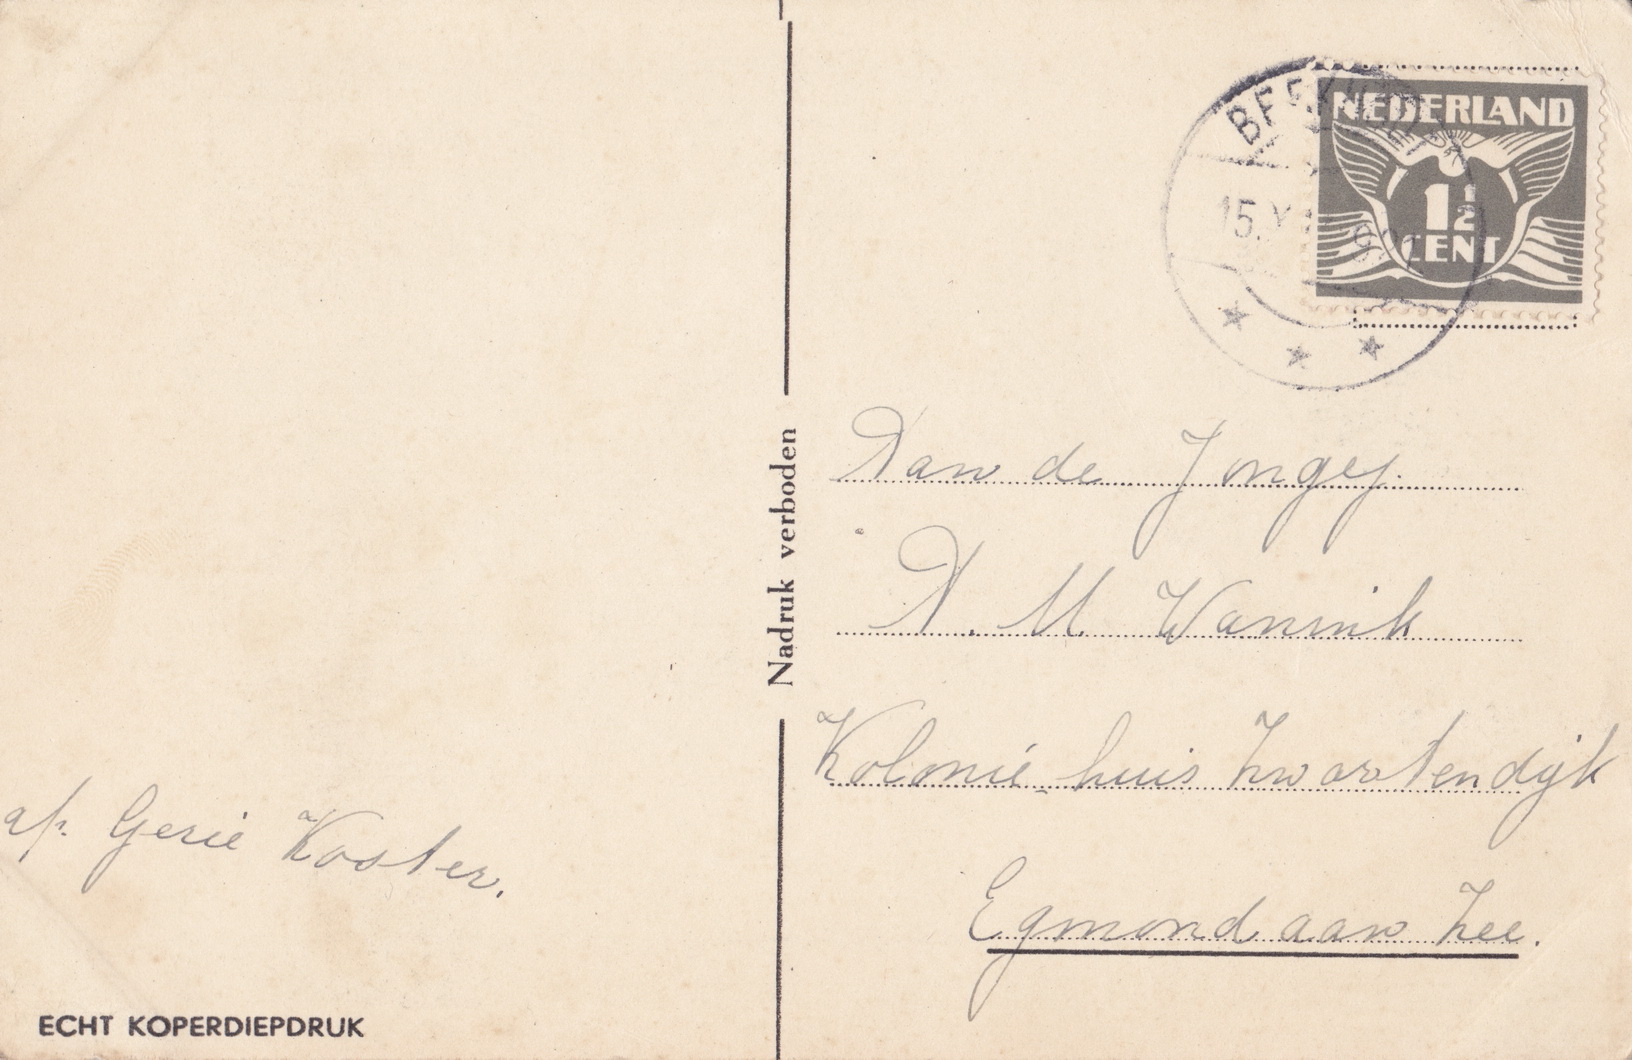 NEDERLAND
1½
CENT
15.
Nadruk verboden
Aan de Jongej.
A. M. Wanink
Kolonie-huis Zwartendijk
Egmond aan Zee.
af. Gerie Koster.
ECHT KOPERDIEPDRUK